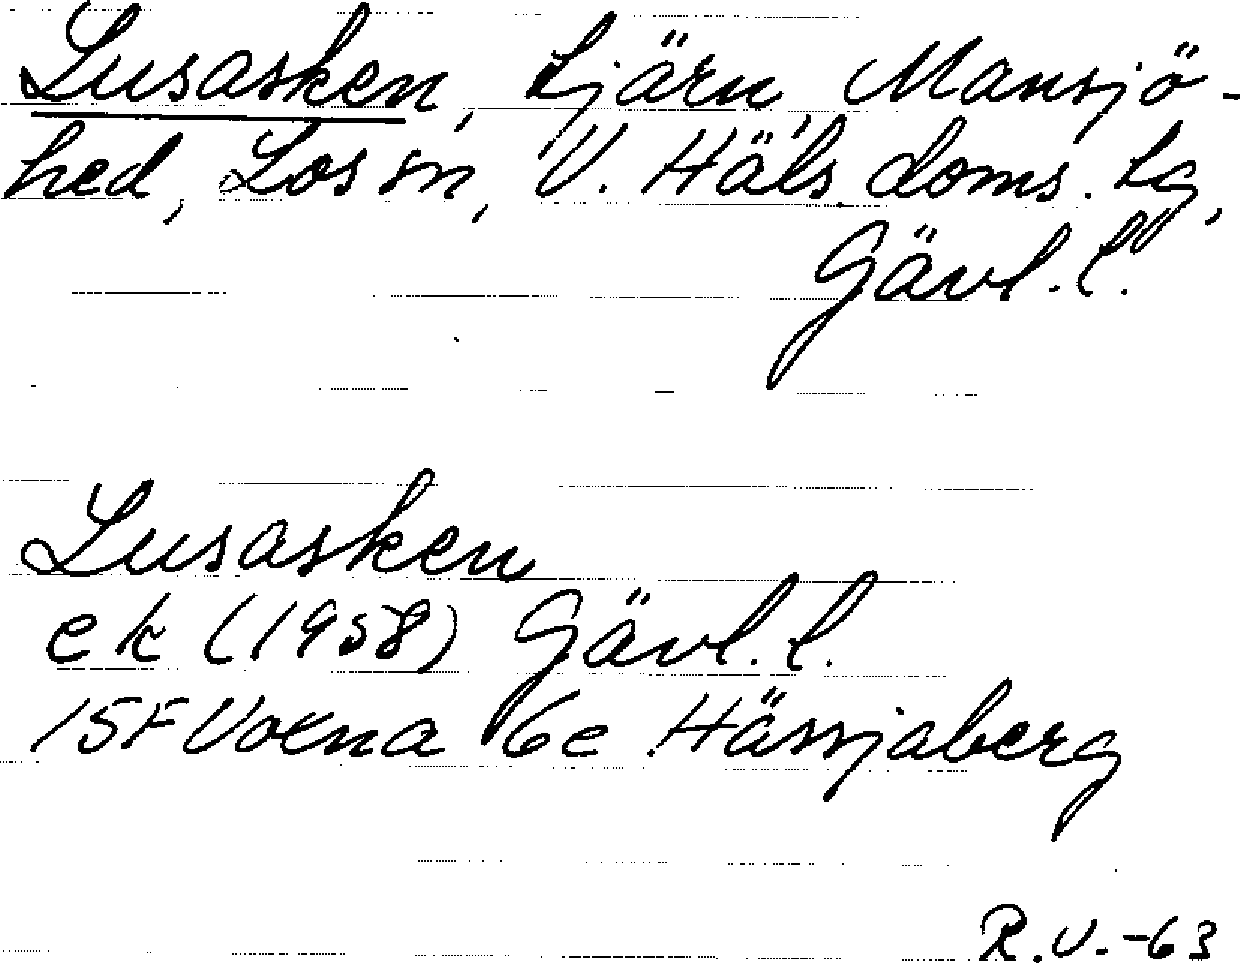 Lusasken, tjärn, Mansjö-
hed, Los sn, V. Häls. doms. tg,
Gävl. l.
Lusasken
ek (1958) Gävl. l.
15F Voxna 6e Hässjaberg
R.V. -63